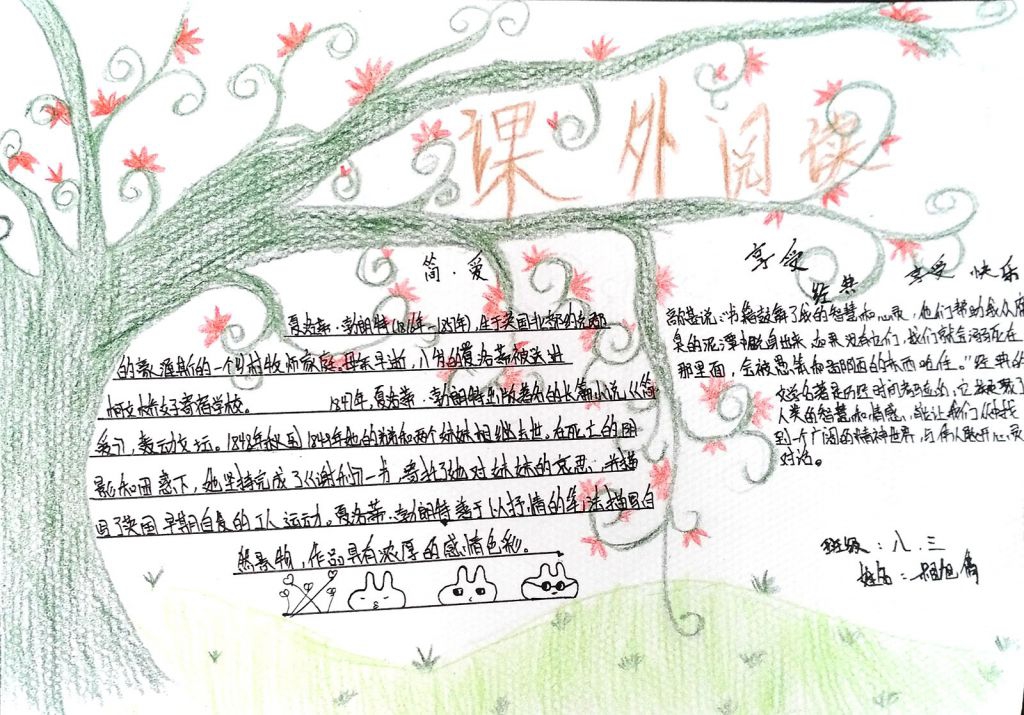 课外阅读
简·爱
夏洛蒂·勃朗特(1816年—1855年),生于英国北部的
的一个乡村牧师家庭。母亲早逝,八岁的夏洛蒂被送进
柯文桥女子寄宿学校。 1847年,夏洛蒂·勃朗特出版著名的长篇小说《简
爱》,轰动文坛。1848年秋到1849年她的弟弟和两个妹妹相继去世。在死亡的阴
影和困惑下,她坚持完成了《谢利》一书,寄托了她对妹妹的哀思,并描
写了英国早期自发的工人运动。夏洛蒂·勃朗特善于以抒情的笔法描写自
然景物,作品具有浓厚的感情色彩。
享受
经典
享受 快乐
说:书籍鼓舞了我的智慧和心灵,它们帮助我从腐
臭的泥潭中脱身出来,如果没有它们,我们就会溺死在
那里面,会被愚笨和鄙陋的东西呛住。”经典的
文学名著是历经时间考验的,它凝聚了
人类的智慧和情感,能让我们
到一个广阔的精神世界,与伟人敞开心灵
对话。
班级:八.三
姓名: